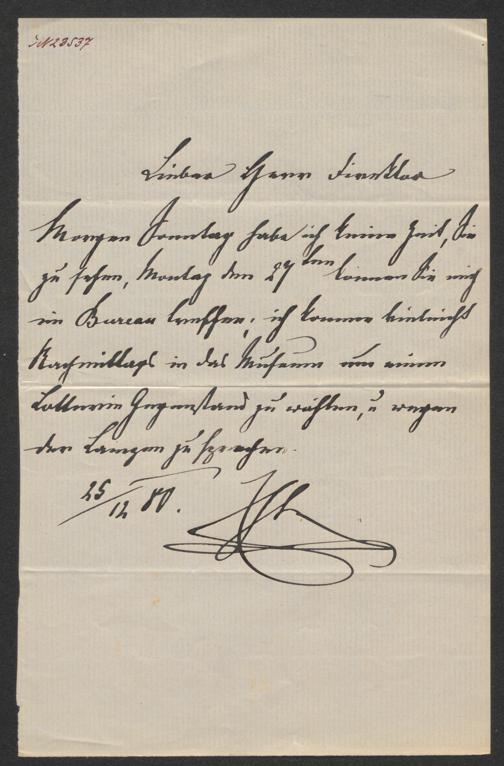 IN 23537
Lieber Herr Direktor
Morgen Sonntag habe ich keine Zeit, Sie
zu sehen, Montag den 27ten können Sie mich
im Bureau treffen, ich komme vielleicht
Nachmittags in das Museum um einen
Lotterie Gegenstand zu wählen, u wegen
der Lampen zu sprechen.
25/12 80.